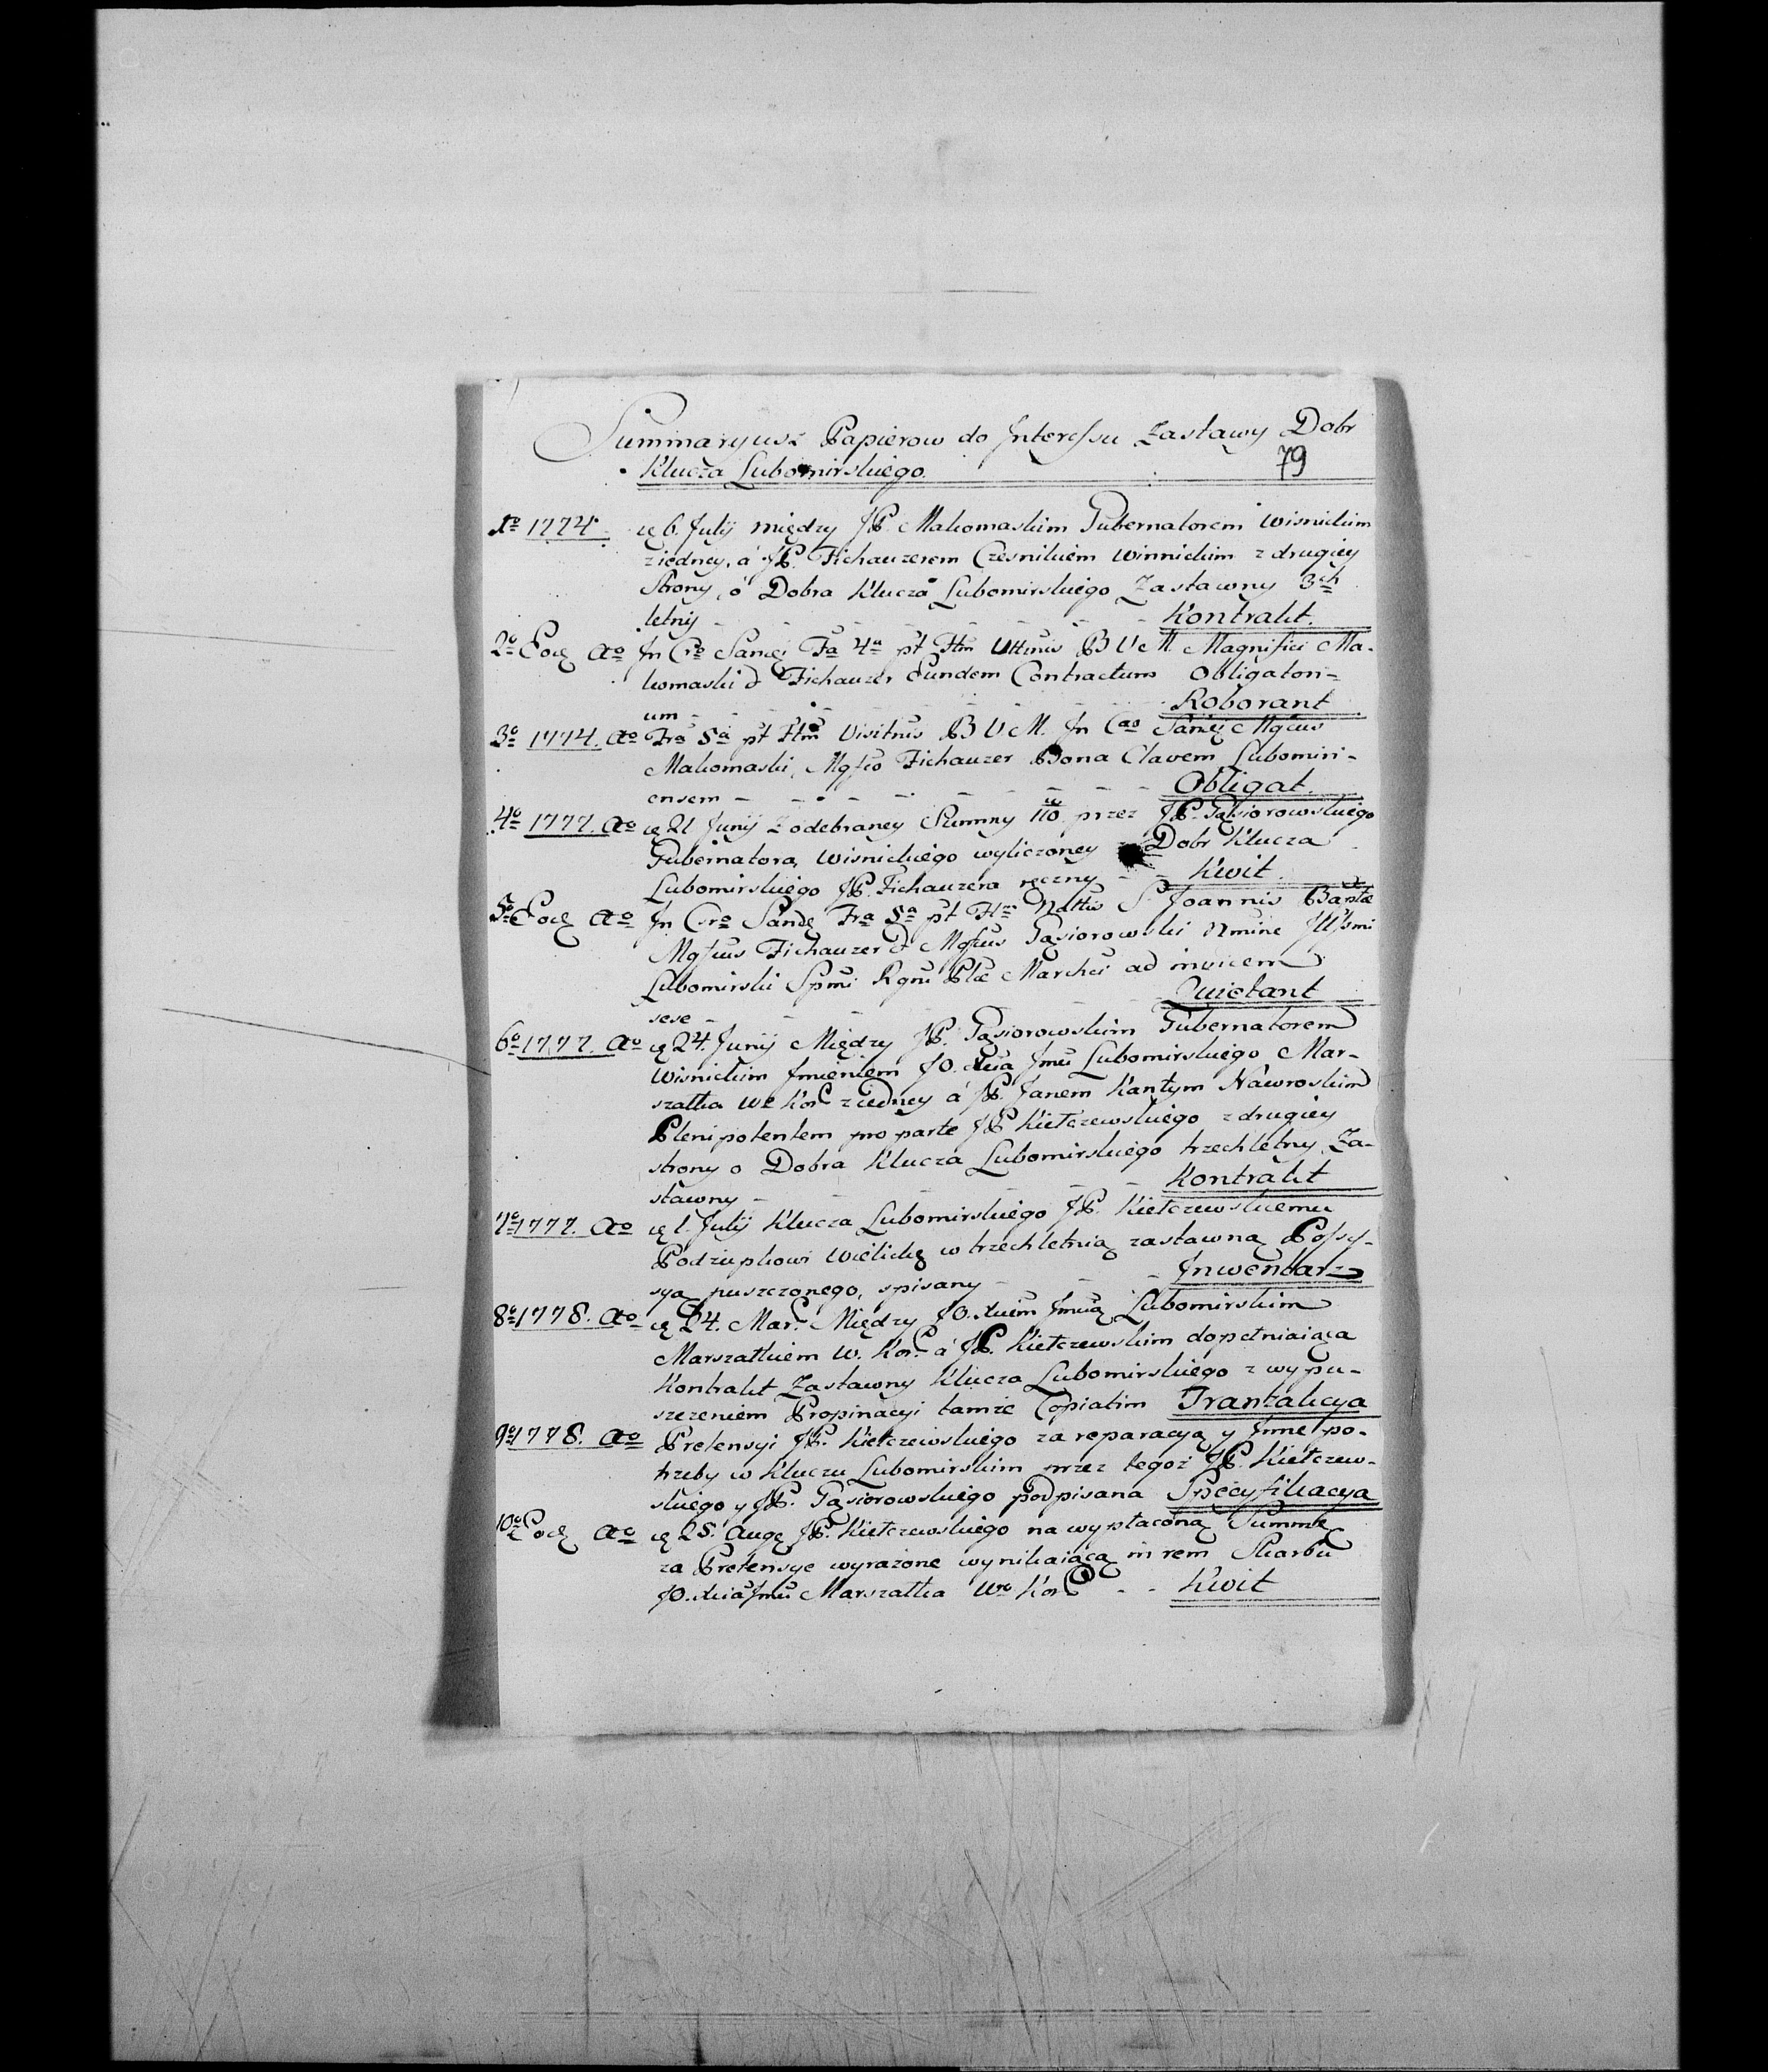 Summaryusz Papierow do Interessu Zastawy Dobr
Klucza Lubomirskiego.
79
1º 1774. 6. Julij między JP. Makomaskim Gubernatorem Wisnickim
z iedney, á JP. Fichauzerem Czesnikiem Winnickim z drugiey
Strony, ó Dobra Klucza Lubomirskiego Zastawny 3ch
letny - - - Kontrakt.
2º Eod Aº In Cro Sandę Fa 4ta pt Ftm BVM. Magnifici Ma-
komaski & Fichauzer Eundem Contractum Obligatori-
um - - - Roborant
3º 1774. Aº Fra 5a pt Ftm Visitnis BVM. In Cas Sandę Mgcus
Makomaski, Mgfco Fichauzer Bona Clavem Lubomiri-
ensem - - - Obligat.
4º 1777. Aº 21 Junij z odebraney Summy przez JP. Gąsiorowskiego
Gubernatora, Wisnickiego wyliczoney Dobr Klucza
Lubomirskiego JP. Fichauzera ręczny - - Kwit.
5º Eod Aº In Cro Sandę Fra 5a pt Ftm Nattis S. Joannis Baptæ
Mgfcus Fichauzer & Mgfcus Gąsiorowski Nmine Illsmi
Lubomirski Spmi Rgni Plæ Marchci ad invicem
sese - - - Quietant
6º 1777. Aº 24. Junij Między JP. Gąsiorowskim Gubernatorem
Wisnickim Imieniem JO. Xcia Jmci Lubomirskiego Mar-
szałka W Kor z iedney á JP. Janem Kantym Nawroskim
Plenipotentem pro parte JP Kiełczewskiego z drugiey
strony o Dobra Klucza Lubomirskiego trzechletny Za-
stawny - - - Kontrakt
7º 1777. Aº 1. Julij Klucza Lubomirskiego JP. Kiełczewskiemu
Podżupkowi Wielickę w trzechletnią zastawną Possy-
syą puszczonego, spisany - - - Inwentarz
8º 1778. Aº 24. Mar. Między JO. Xciem Jmcią Lubomirskim
Marszałkiem W. Kor. á JP. Kiełczewskim dopełniaiąca
Kontrakt Zastawny Klucza Lubomirskiego z wypu-
szczeniem Propinacyi tamże Copiatim Tranzakcya
9º 1778. Aº Pretensyi JP. Kiełczewskiego za reparacyą y Inne po-
trzeby w Kluczu Lubomirskim przez tegoż JP. Kiełczew-
skiego y JP. Gąsiorowskiego podpisana Specyfikacya
10º Eod Aº 25. Augę JP. Kiełczewskiego na wypłaconą Summę
za Pretensye wyrażone wynikaiącą in rem Skarbu
JO. Xcia Jmci Marszałka W Kor - - Kwit